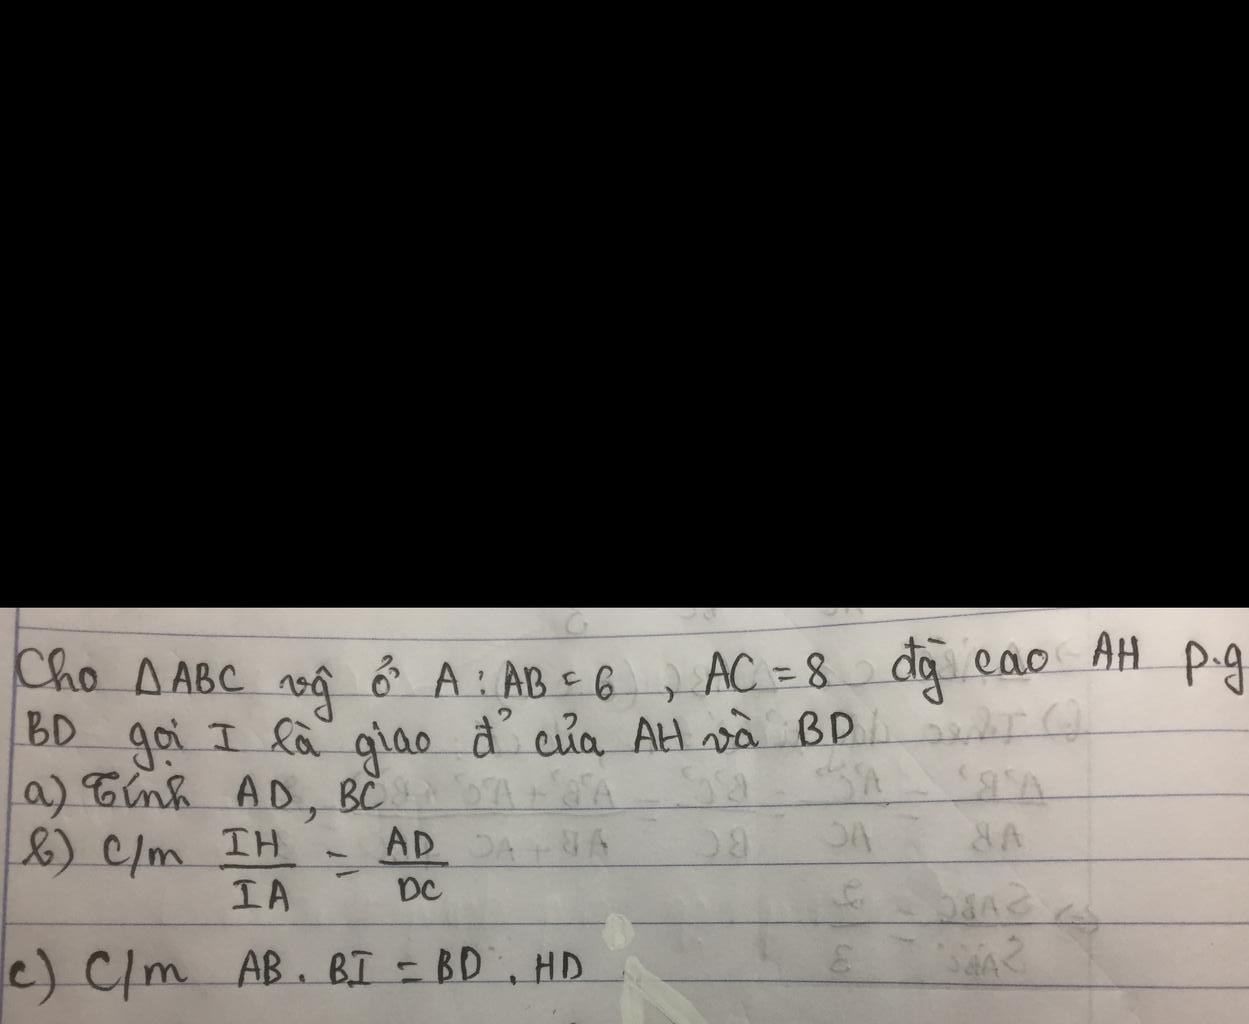 Cho ΔABC vg̃ ở A : AB = 6 , AC = 8 đg̃ cao AH p.g
BD gọi I là giao đ' của AH và BD
a) Tính AD, BC
b) C/m IH/IA = AD/DC
c) C/m AB . BI = BD . HD